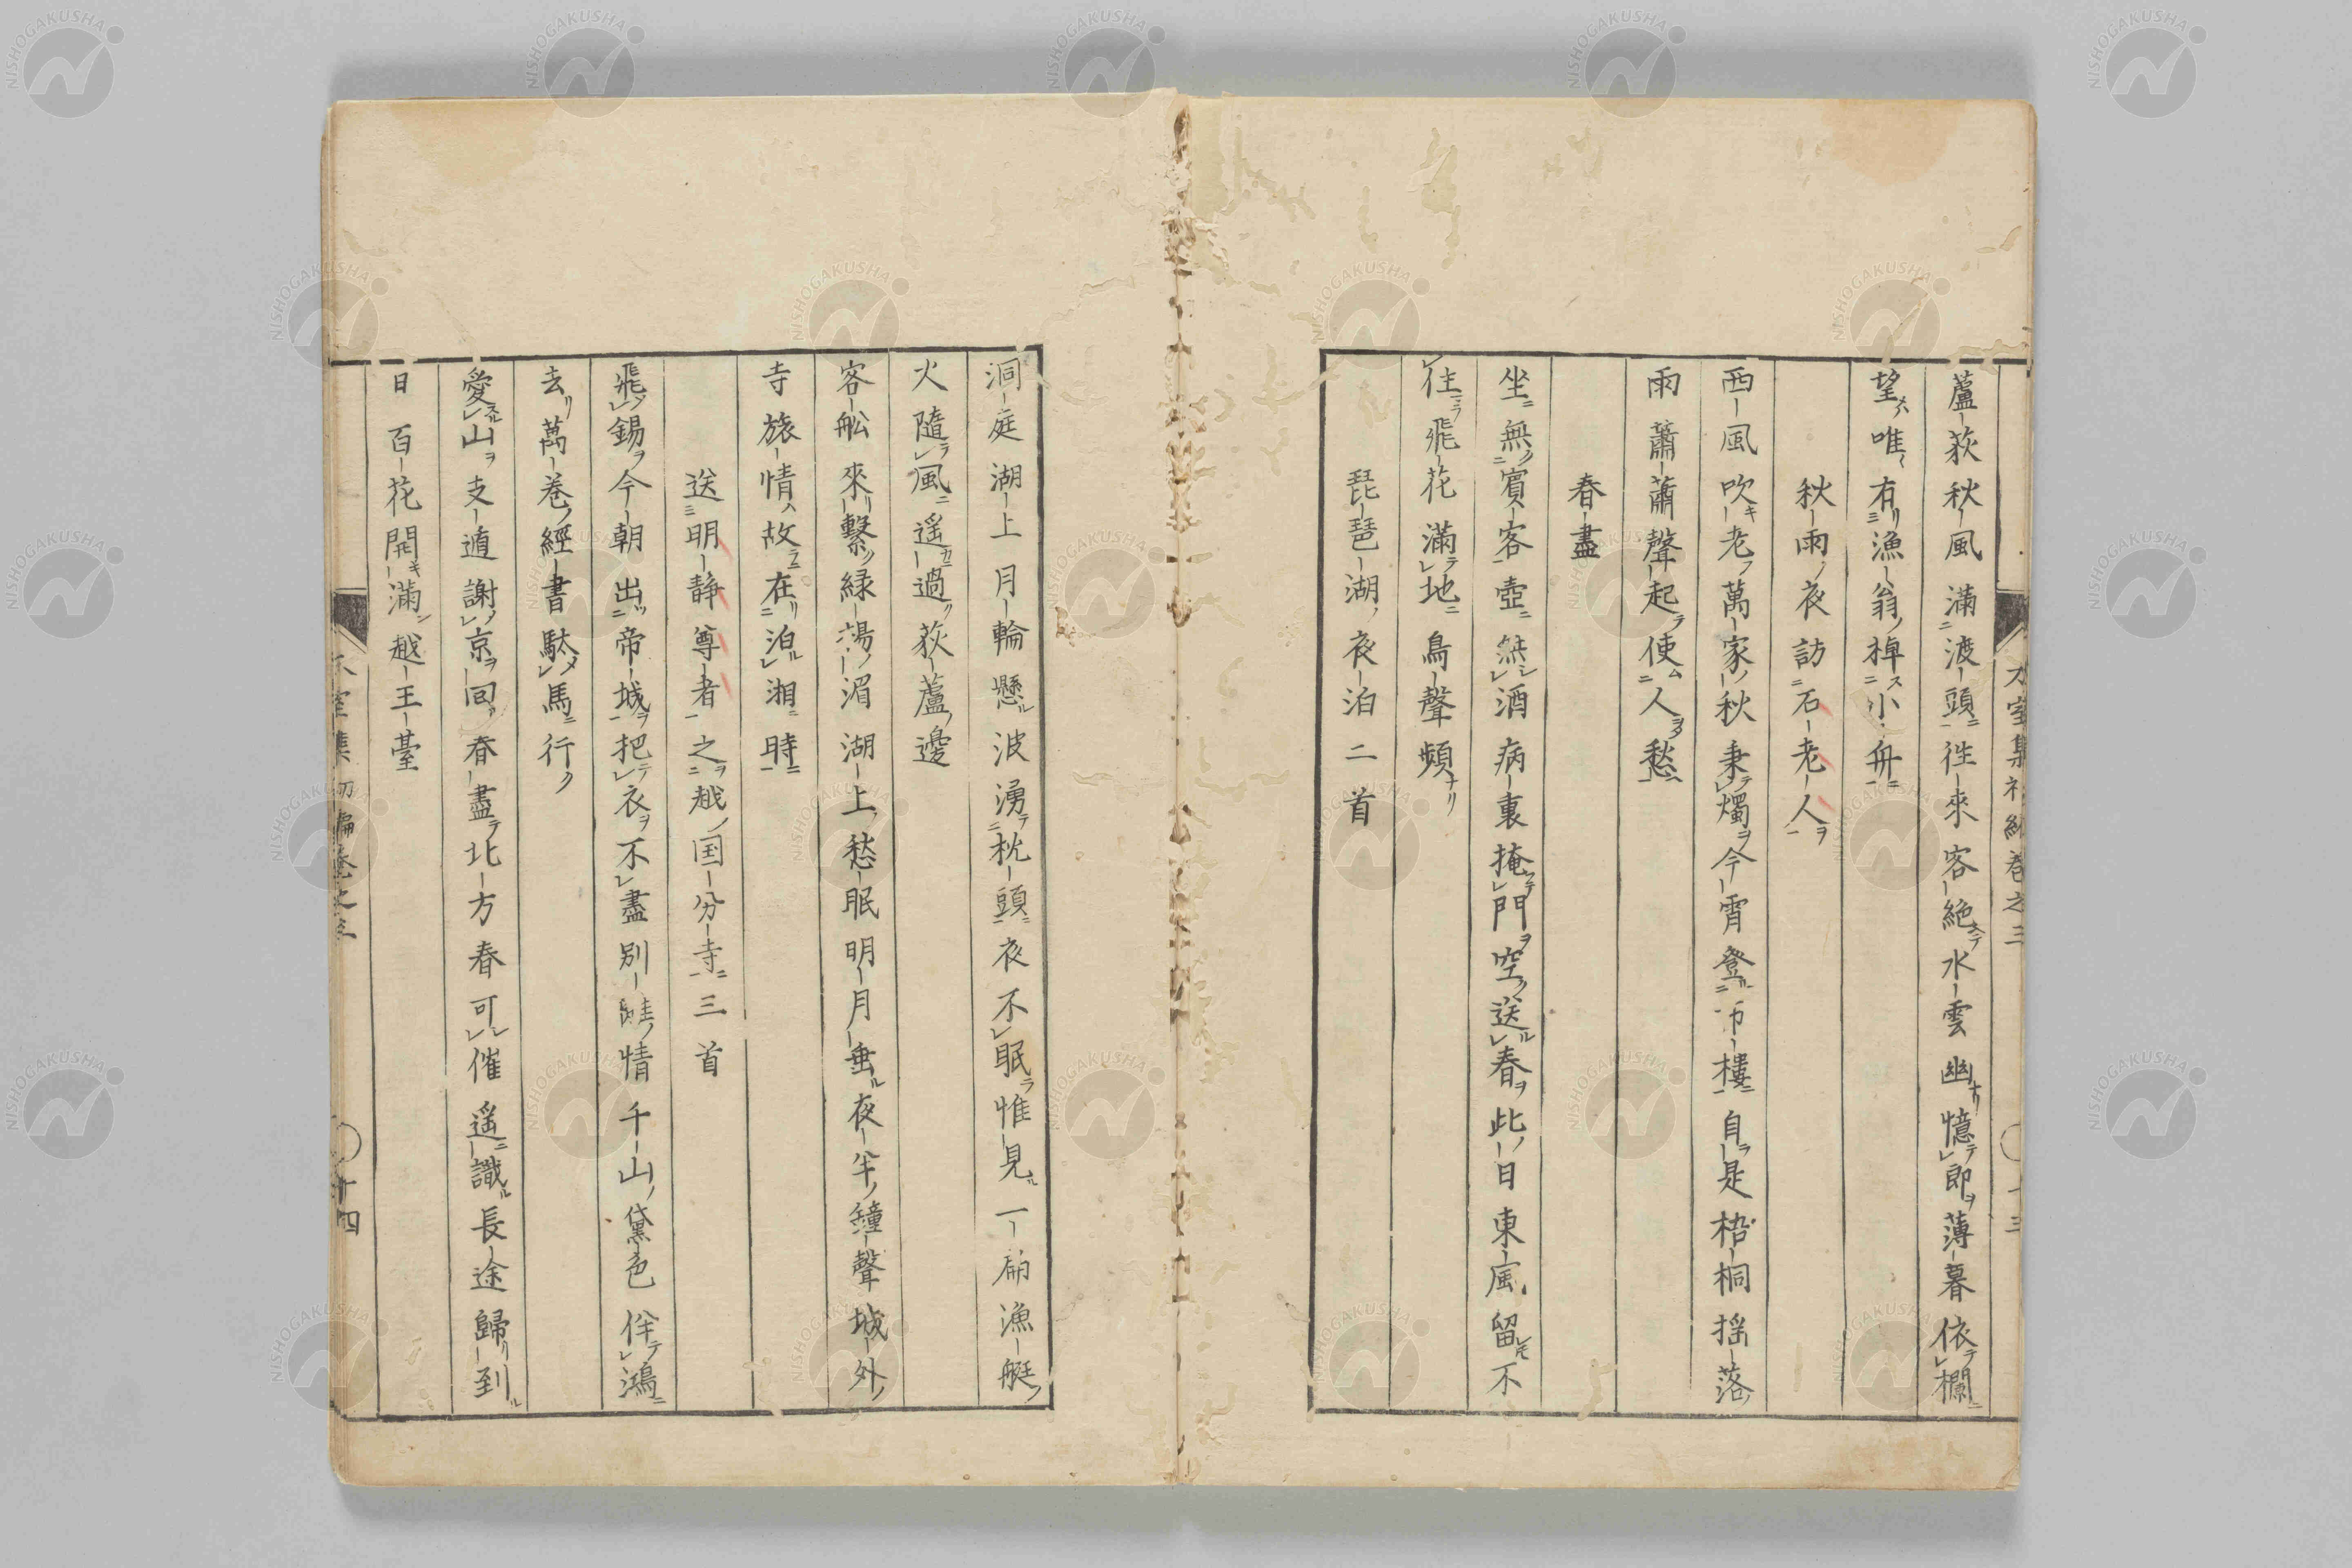 蘆荻秋風滿渡頭往來客絶水雲幽憶郎薄暮依欄
望唯有漁翁棹小舟
秋雨夜訪石老人
西風吹老萬家秋秉燭今宵登市樓自是梧桐揺落
雨蕭蕭聲起使人愁
春盡
坐無賓客壺無酒病裏掩門空送春此日東風留不
住飛花滿地鳥聲頻
琵琶湖夜泊二首
洞庭湖上月輪懸波湧枕頭夜不眠惟見一扁漁艇
火隨風遥過荻蘆邊
客舩來繋緑蕩湄湖上愁眠明月垂夜半鐘聲城外
寺旅情故在泊湘時
送明静尊者之越国分寺三首
飛錫今朝出帝城把衣不盡別離情千山黛色伴鴻
去萬巻經書駄馬行
愛山支遁謝京回春盡北方春可催遥識長途歸到
日百花開滿越王臺
室集初編巻之三
十四